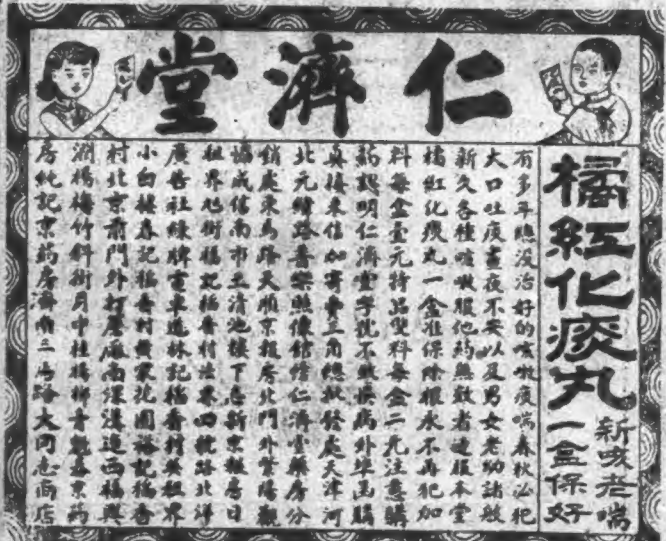 仁濟堂
橘紅化痰丸
新咳老喘
一盒保好
有多年總没治好的咳嗽痰喘春秋必犯
大口吐痰晝夜不安以及男女老幼諸般
新久各種咳嗽服他藥無效者速服本堂
橘紅化痰丸一盒准保除根永不再犯加
料每盒壹元特品雙料每盒二元注意購
藥認明仁濟堂字號不致悞病外埠函購
真接來信加寄費三角總批發處天津河
北元緯路喜樂照像館傍仁濟堂藥房分
銷處東馬路天順京報房北門外紫陽觀
協成信南市玉清池樓下忠新京報房日
租界旭街福記稻香村法界四號路北洋
廣告社綠牌電車道林記稻香村英租界
小白樓森記稻香村黄家花園裕記稻香
村北京前門外打磨廠南深溝道西福興
潤楊梅竹斜街月中桂楊柳青魁泰京药
房純記京药房濟南三馬路大同進商店